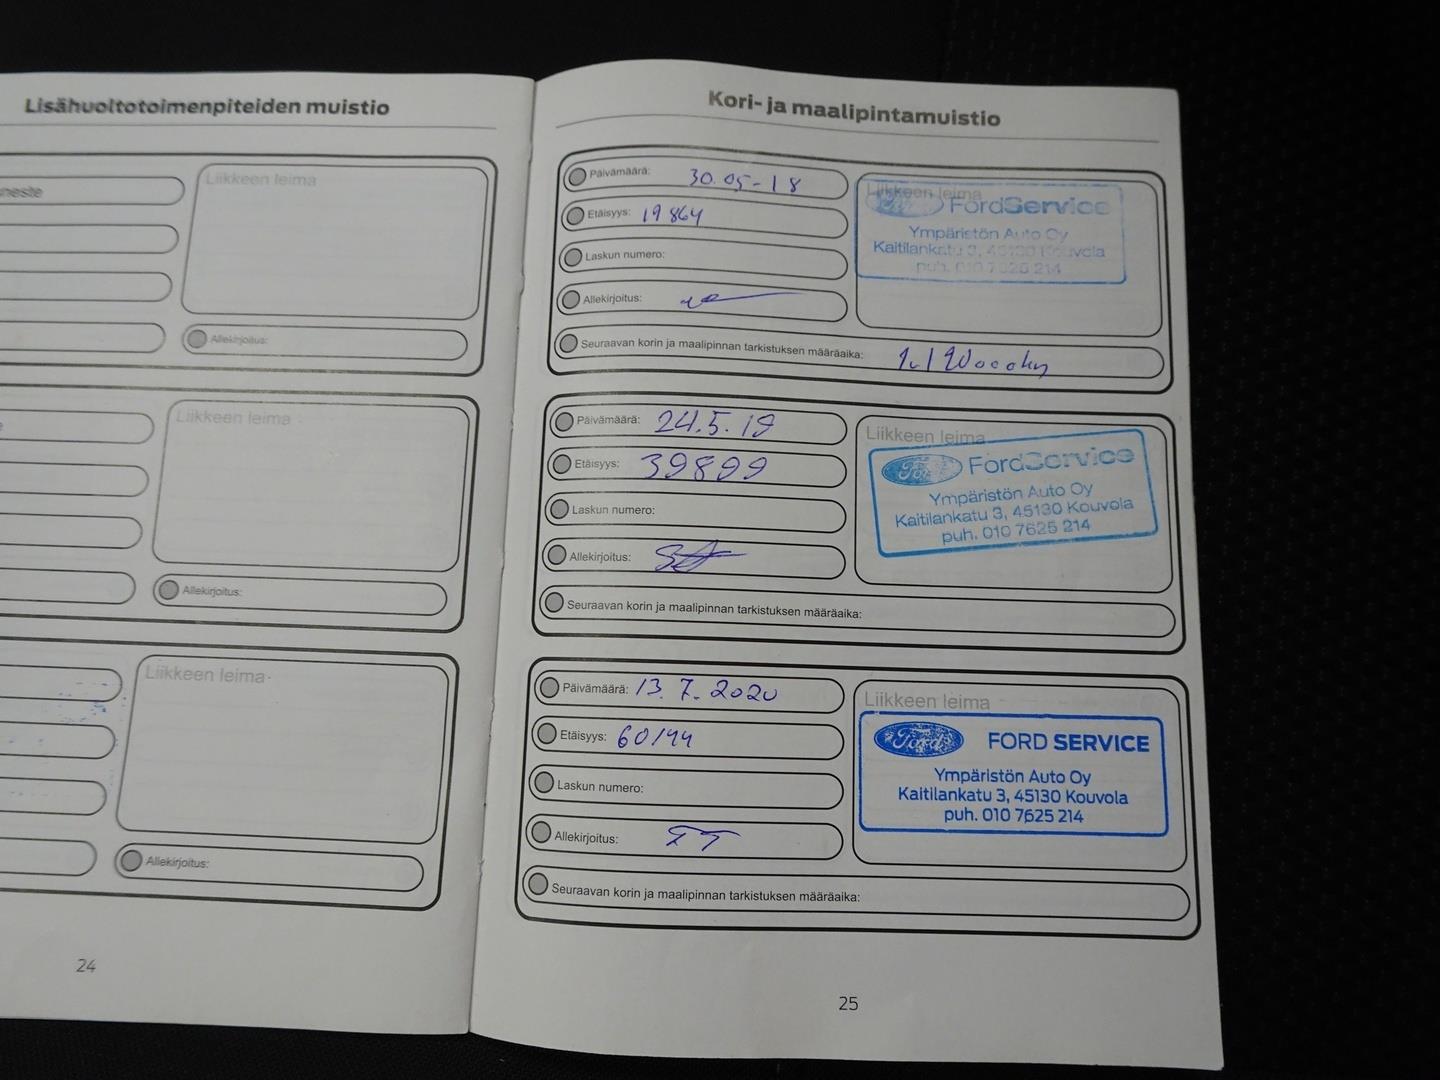 Lisähuoltotoimenpiteiden muistio
neste
Liikkeen leima
Allekirjoitus:
Liikkeen leima
Allekirjoitus:
Liikkeen leima
Allekirjoitus:
24
Kori- ja maalipintamuistio
Päivämäärä: 30.05-18
Etäisyys: 19864
Laskun numero:
Allekirjoitus:
Liikkeen leima
Ford FordService
Ympäristön Auto Oy
Kaitilankatu 3, 45130 Kouvola
puh. 010 7625 214
Seuraavan korin ja maalipinnan tarkistuksen määräaika:
Päivämäärä: 24.5.19
Etäisyys: 39899
Laskun numero:
Allekirjoitus:
Liikkeen leima
Ford FordService
Ympäristön Auto Oy
Kaitilankatu 3, 45130 Kouvola
puh. 010 7625 214
Seuraavan korin ja maalipinnan tarkistuksen määräaika:
Päivämäärä: 13.7.2020
Etäisyys: 60144
Laskun numero:
Allekirjoitus:
Liikkeen leima
Ford FORD SERVICE
Ympäristön Auto Oy
Kaitilankatu 3, 45130 Kouvola
puh. 010 7625 214
Seuraavan korin ja maalipinnan tarkistuksen määräaika:
25